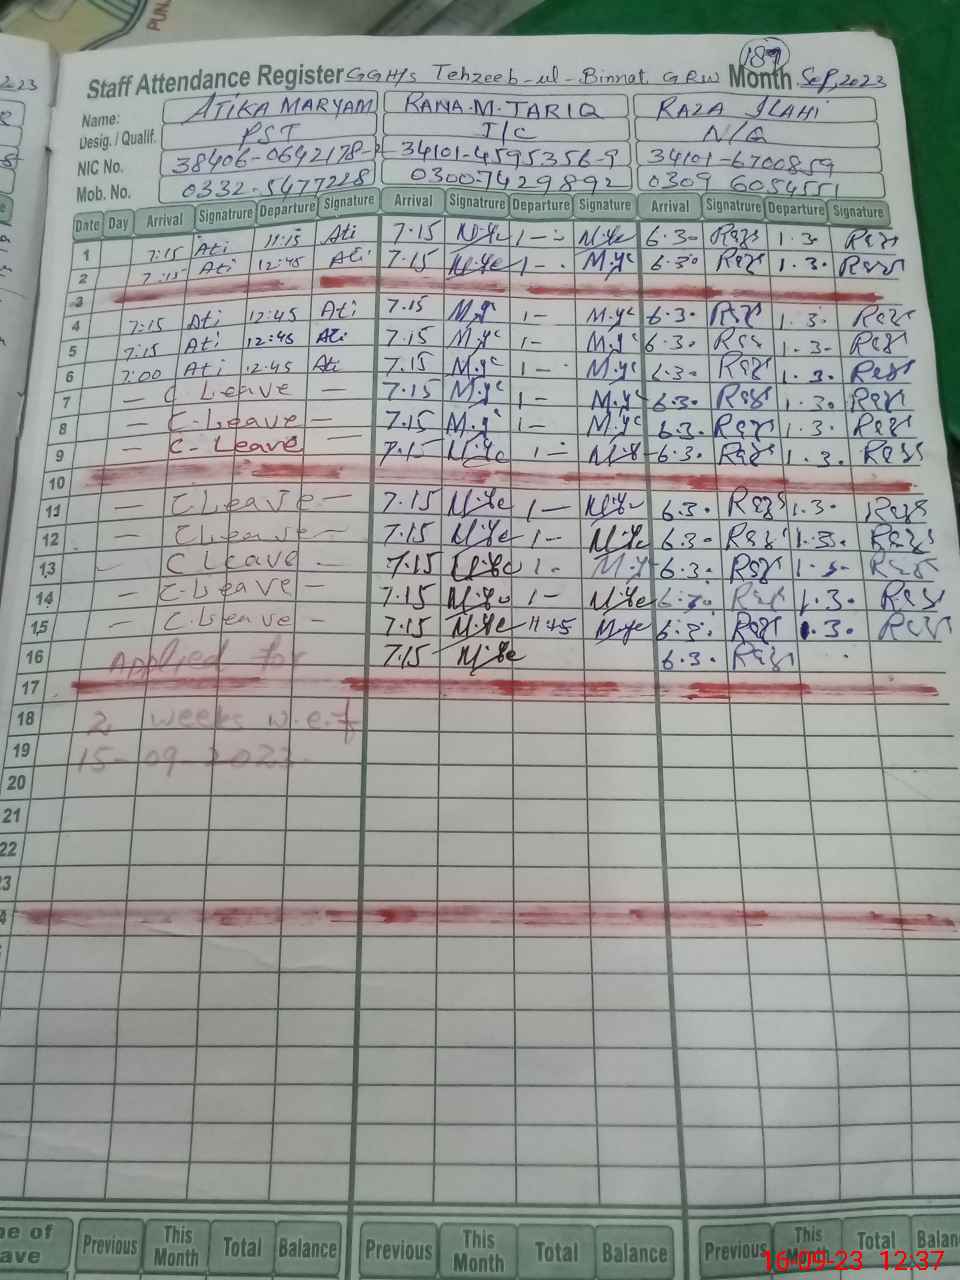 PUN
2023
189
Staff Attendance Register GGHS Tehzeeb-ul-Binnat GRW Month Sep,2023
Name: ATIKA MARYAM RANA.M.TARIQ RAZA ILAHI
Desig. / Qualif. PST I/C N/Q
NIC No. 38406-0642178-2 34101-4595356-9 34101-6700859
Mob. No. 0332-5477228 03007429892 0309 6054551
Date Day Arrival Signatrure Departure Signature Arrival Signatrure Departure Signature Arrival Signatrure Departure Signature
1 7:15 Ati 11:15 Ati 7.15 1- 6.30 Raza 1.30 Raza
2 7:15 Ati 12:45 Ati 7.15 1- 6.30 Raza 1.30 Raza
3
4 7:15 Ati 12:45 Ati 7.15 1- 6.30 Raza 1.30 Raza
5 7:15 Ati 12:45 Ati 7.15 1- 6.30 Raza 1.30 Raza
6 7:00 Ati 12:45 Ati 7.15 1- 6.30 Raza 1.30 Raza
7 - C Leave - 7.15 1- 6.30 Raza 1.30 Raza
8 - C.Leave - 7.15 1- 6.30 Raza 1.30 Raza
9 - C-Leave - 7.15 1- 6.30 Raza 1.30 Raza
10
11 - C Leave - 7.15 1- 6.30 Raza 1.30 Raza
12 - C Leave - 7.15 1- 6.30 Raza 1.30 Raza
13 - C Leave - 7.15 1- 6.30 Raza 1.30 Raza
14 - C.Leave - 7.15 1- 6.30 Raza 1.30 Raza
15 - C.Leave - 7.15 11:45 6.30 Raza 1.30 Raza
16 Applied for 7.15 6.30 Raza
17
18 2 weeks w.e.f
19 15-09-2023
20
21
22
23
24
ne of Previous This Month Total Balance Previous This Month Total Balance Previous This Month Total Balan
ave
16-09-23 12:37